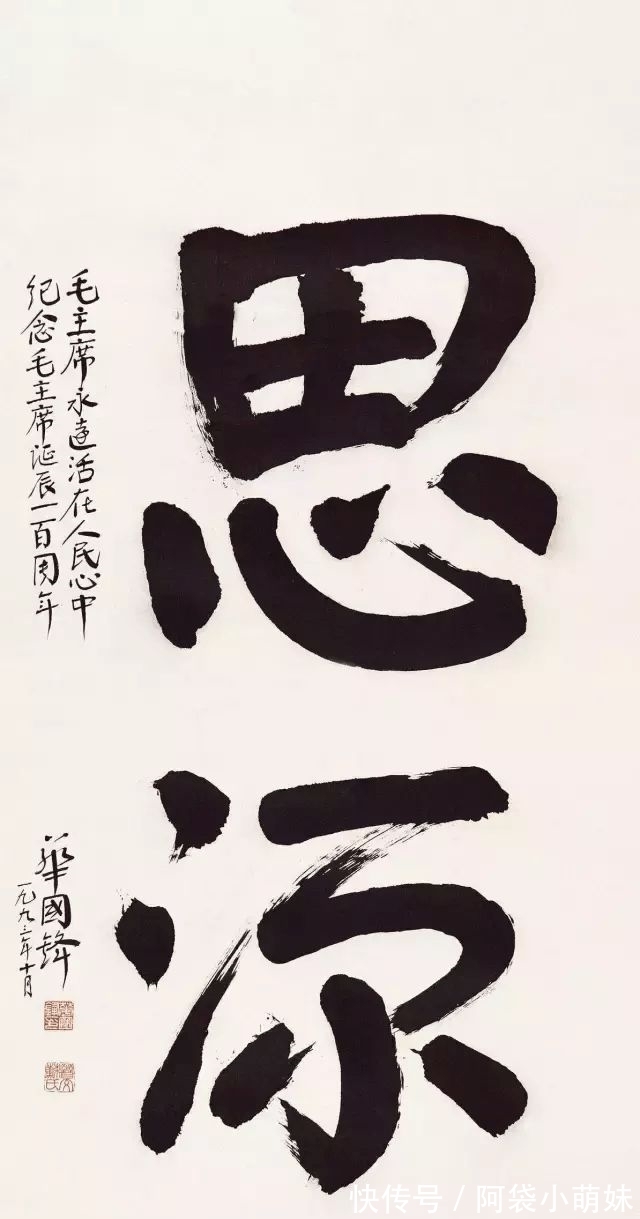 思源
毛主席永遠活在人民心中
纪念毛主席诞辰一百周年
華國鋒
一九九三年十月
快传号 / 阿袋小萌妹